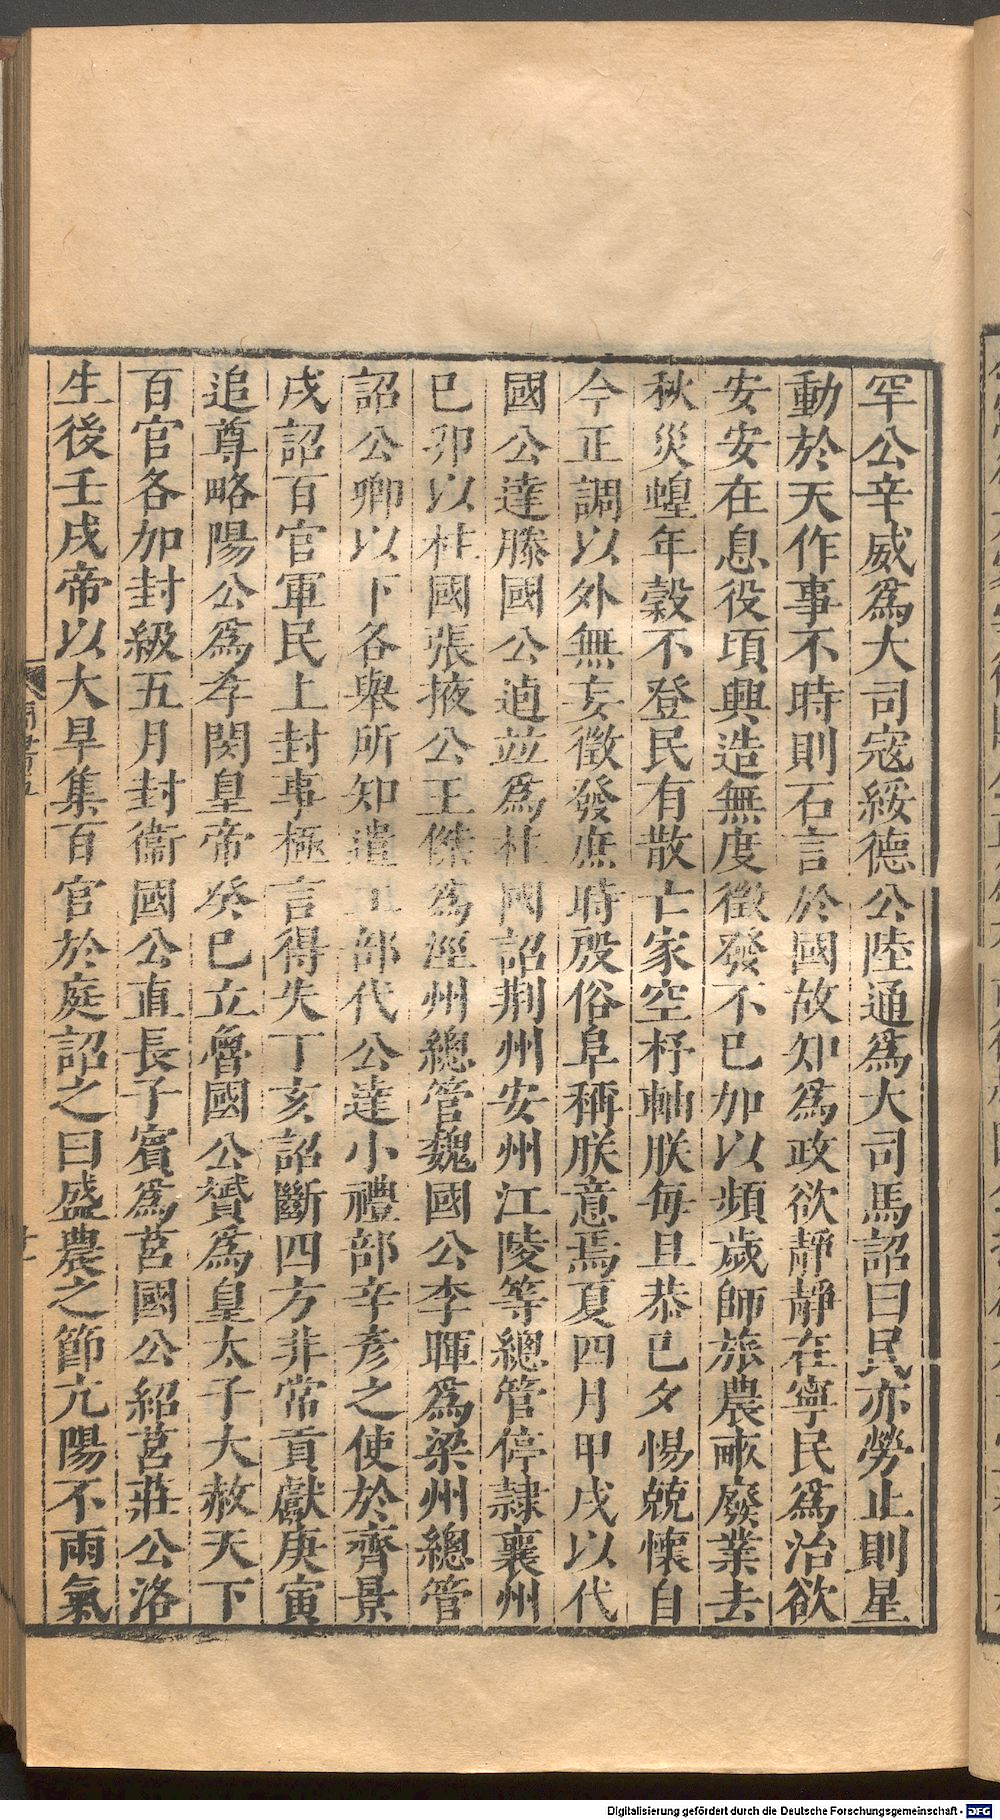 罕公辛威爲大司寇綏德公陸通爲大司馬詔曰民亦勞止則星
動於天作事不時則石言於國故知爲政欲靜靜在寧民爲治欲
安安在息役頃興造無度徵發不已加以頻歲師旅農畝廢業去
秋災蝗年穀不登民有散亡家空杼軸朕每旦恭已夕惕兢懷自
今正調以外無妄徵發庶時殷俗阜稱朕意焉夏四月甲戌以代
國公達滕國公逌並爲柱國詔荆州安州江陵等總管停隷襄州
已卯以柱國張掖公王傑爲涇州總管魏國公李暉爲梁州總管
詔公卿以下各舉所知遣工部代公達小禮部辛彥之使於齊景
戌詔百官軍民上封事極言得失丁亥詔斷四方非常貢獻庚寅
追尊略陽公爲孝閔皇帝癸巳立魯國公贇爲皇太子大赦天下
百官各加封級五月封衞國公直長子賓爲莒國公紹莒莊公洛
生後壬戌帝以大旱集百官於庭詔之曰盛農之節亢陽不雨氣
Digitalisierung gefördert durch die Deutsche Forschungsgemeinschaft - DFG